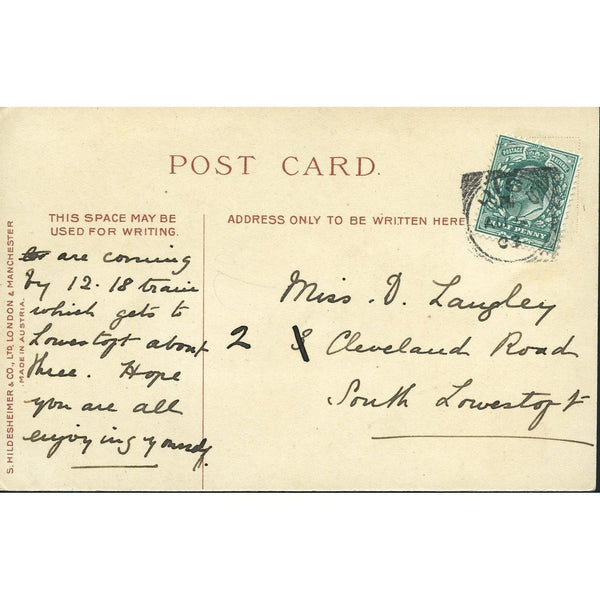 POST CARD.
THIS SPACE MAY BE
USED FOR WRITING.
ADDRESS ONLY TO BE WRITTEN HERE
POSTAGE
HALF PENNY
are coming
by 12.18 train
which gets to
Lowestoft about
three. Hope
you are all
enjoying yourself.
Miss. D. Langley
2 8 Cleveland Road
South Lowestoft
S. HILDESHEIMER & CO., LTD, LONDON & MANCHESTER
MADE IN AUSTRIA.